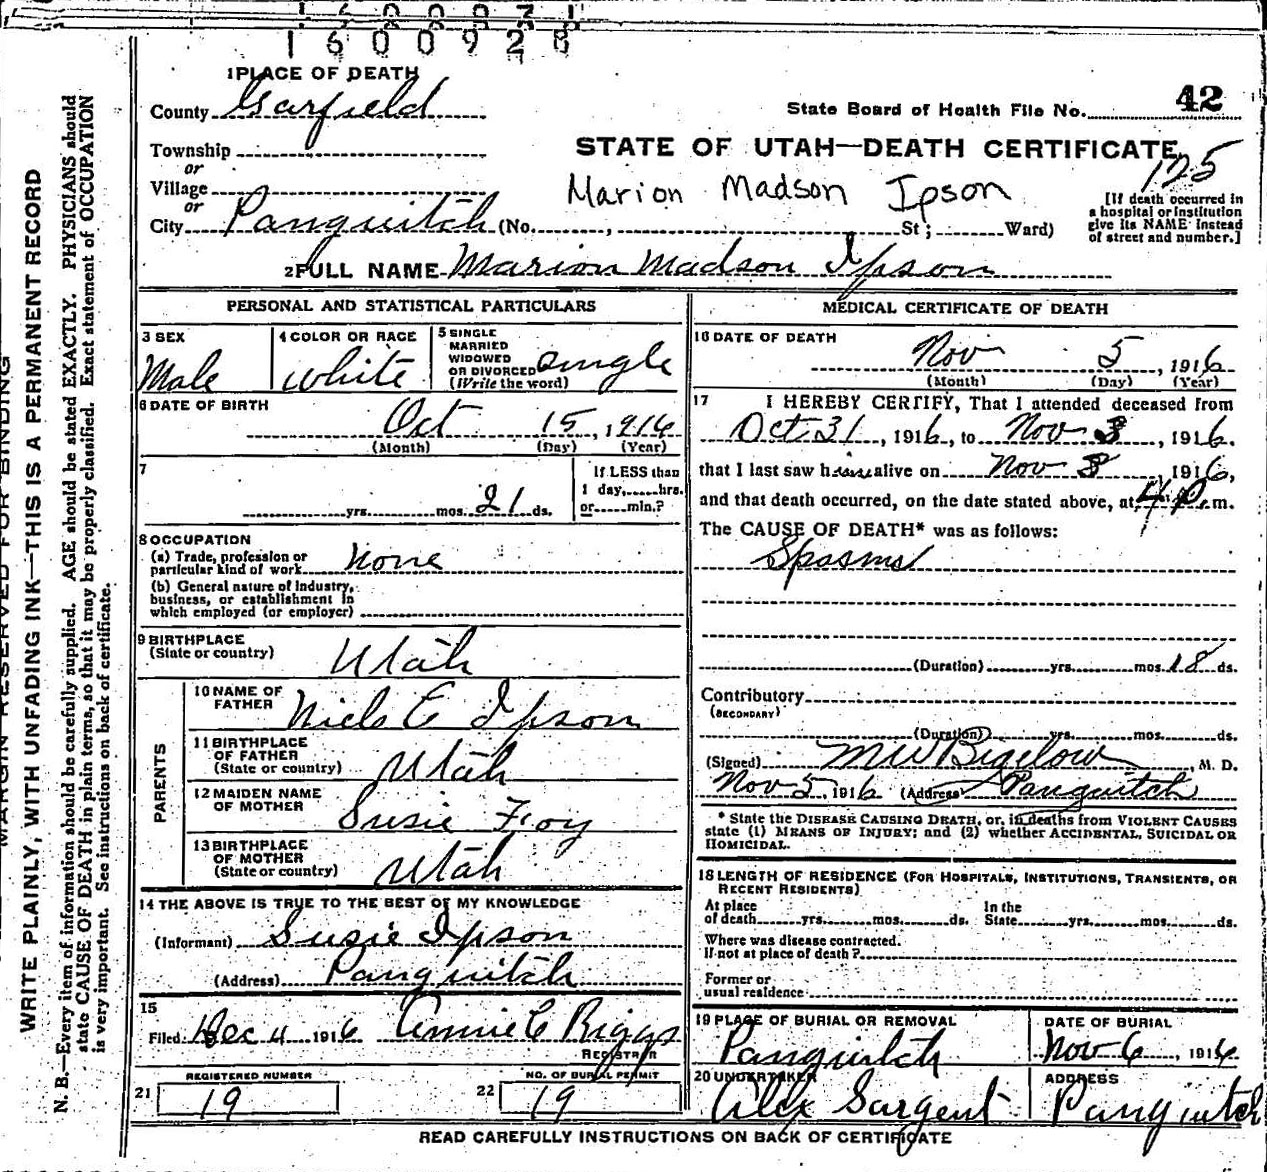 1600928
1 PLACE OF DEATH
County Garfield
State Board of Health File No. 42
Township
or
Village
or
City Panguitch (No. , St; Ward)
STATE OF UTAH—DEATH CERTIFICATE
125
Marion Madson Ipson
[If death occurred in
a hospital or institution
give its NAME instead
of street and number.]
2 FULL NAME Marion Madson Ipson
PERSONAL AND STATISTICAL PARTICULARS
3 SEX
Male
4 COLOR OR RACE
White
5 SINGLE
MARRIED
WIDOWED
OR DIVORCED
(Write the word)
Single
6 DATE OF BIRTH
Oct 15, 1916
(Month) (Day) (Year)
7
yrs. mos. 21 ds.
If LESS than
1 day, hrs.
or min.?
8 OCCUPATION
(a) Trade, profession or
particular kind of work None
(b) General nature of industry,
business, or establishment in
which employed (or employer)
9 BIRTHPLACE
(State or country) Utah
PARENTS
10 NAME OF
FATHER Niels E Ipson
11 BIRTHPLACE
OF FATHER
(State or country) Utah
12 MAIDEN NAME
OF MOTHER Susie Foy
13 BIRTHPLACE
OF MOTHER
(State or country) Utah
14 THE ABOVE IS TRUE TO THE BEST OF MY KNOWLEDGE
(Informant) Susie Ipson
(Address) Panguitch
15
Filed Dec 4 1916 Annie C Riggs
REGISTRAR
REGISTERED NUMBER
21 19
NO. OF BURIAL PERMIT
22 19
MEDICAL CERTIFICATE OF DEATH
16 DATE OF DEATH
Nov 5, 1916
(Month) (Day) (Year)
17 I HEREBY CERTIFY, That I attended deceased from
Oct 31, 1916, to Nov 3, 1916.
that I last saw him alive on Nov 3, 1916,
and that death occurred, on the date stated above, at 4 p.m.
The CAUSE OF DEATH* was as follows:
Spasms
(Duration) yrs. mos. 18 ds.
Contributory
(SECONDARY)
(Duration) yrs. mos. ds.
(Signed) M W Bigelow, M. D.
Nov 5, 1916 (Address) Panguitch
* State the DISEASE CAUSING DEATH, or, in deaths from VIOLENT CAUSES
state (1) MEANS OF INJURY; and (2) whether ACCIDENTAL, SUICIDAL OR
HOMICIDAL.
18 LENGTH OF RESIDENCE (FOR HOSPITALS, INSTITUTIONS, TRANSIENTS, OR
RECENT RESIDENTS)
At place
of death yrs. mos. ds.
In the
State yrs. mos. ds.
Where was disease contracted.
If not at place of death?
Former or
usual residence
19 PLACE OF BURIAL OR REMOVAL
Panguitch
DATE OF BURIAL
Nov 6, 1916
20 UNDERTAKER
Alex Sargent
ADDRESS
Panguitch
READ CAREFULLY INSTRUCTIONS ON BACK OF CERTIFICATE
MARGIN RESERVED FOR BINDING
WRITE PLAINLY, WITH UNFADING INK—THIS IS A PERMANENT RECORD
N. B.—Every item of information should be carefully supplied. AGE should be stated EXACTLY. PHYSICIANS should
state CAUSE OF DEATH in plain terms, so that it may be properly classified. Exact statement of OCCUPATION
is very important. See instructions on back of certificate.